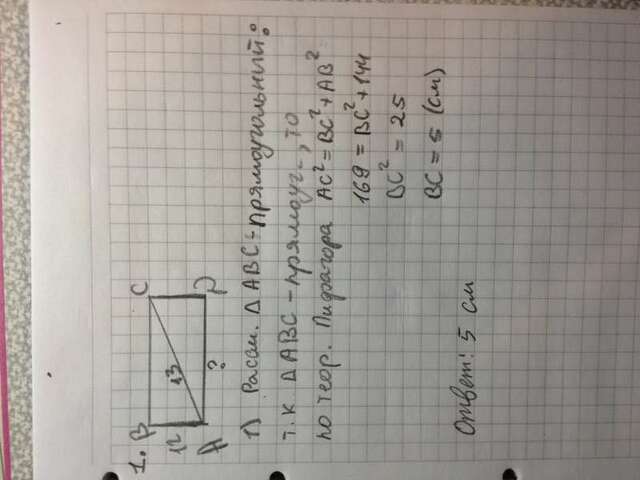 1. B C
12 13
A ? D
1) Рассм. △ABC - прямоугольный:
т.к △ABC - прямоуг., то
по теор. Пифагора AC² = BC² + AB²
169 = BC² + 144
BC² = 25
BC = 5 (см)
Ответ: 5 см